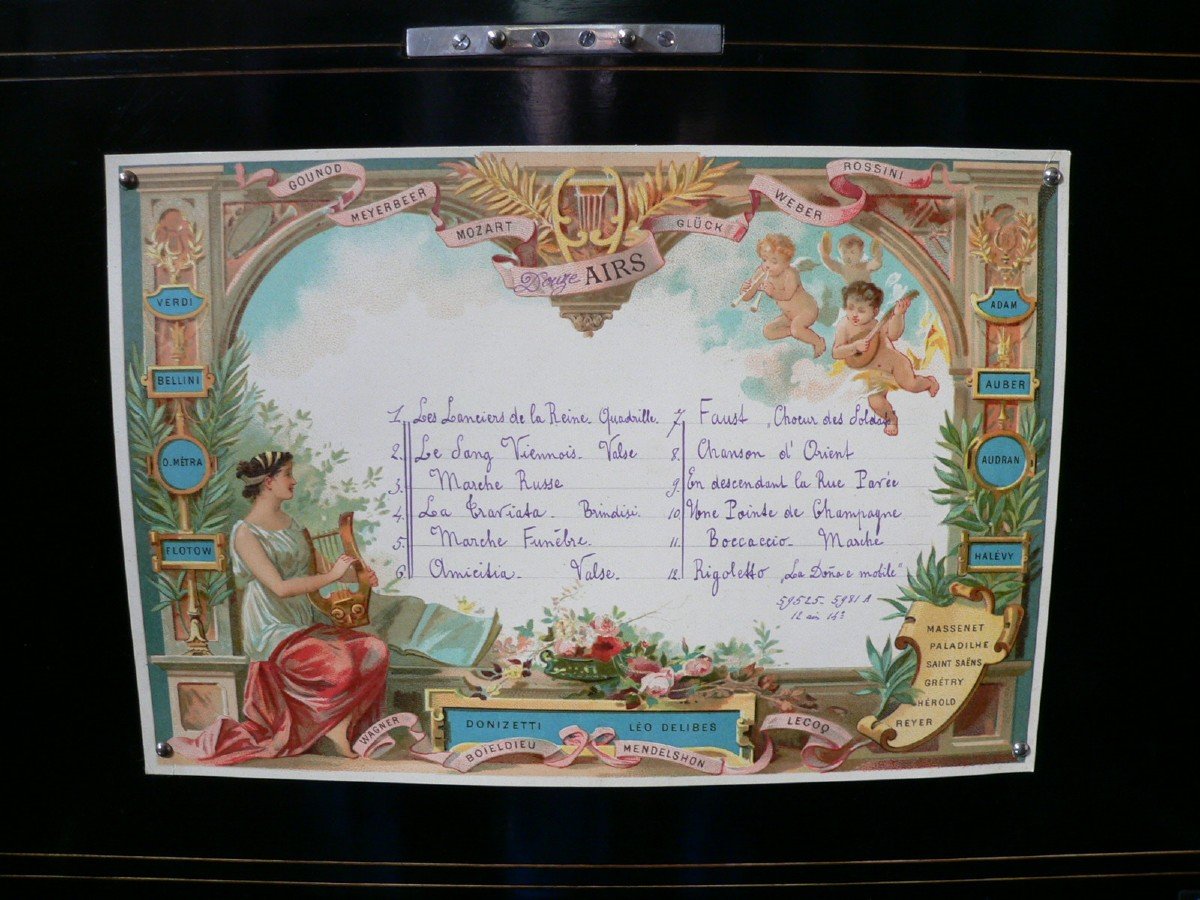 GOUNOD
MEYERBEER
MOZART
GLÜCK
WEBER
ROSSINI
Douze AIRS
VERDI
BELLINI
O.MÉTRA
FLOTOW
ADAM
AUBER
AUDRAN
HALÉVY
1. Les Lanciers de la Reine Quadrille.
2. Le Sang Viennois. Valse
3. Marche Russe
4. La Traviata. Brindisi.
5. Marche Funèbre.
6. Amicitia. Valse.
7. Faust, Choeur des Soldats
8. Chanson d'Orient
9. En descendant la Rue Pavée
10. Une Pointe de Champagne
11. Boccaccio. Marche
12. Rigoletto „La Doña e mobile"
59525. 5981 A
12 airs
MASSENET
PALADILHE
SAINT SAËNS
GRÉTRY
HÉROLD
REYER
WAGNER
DONIZETTI
LÉO DELIBES
BOIELDIEU
MENDELSHON
LECOQ